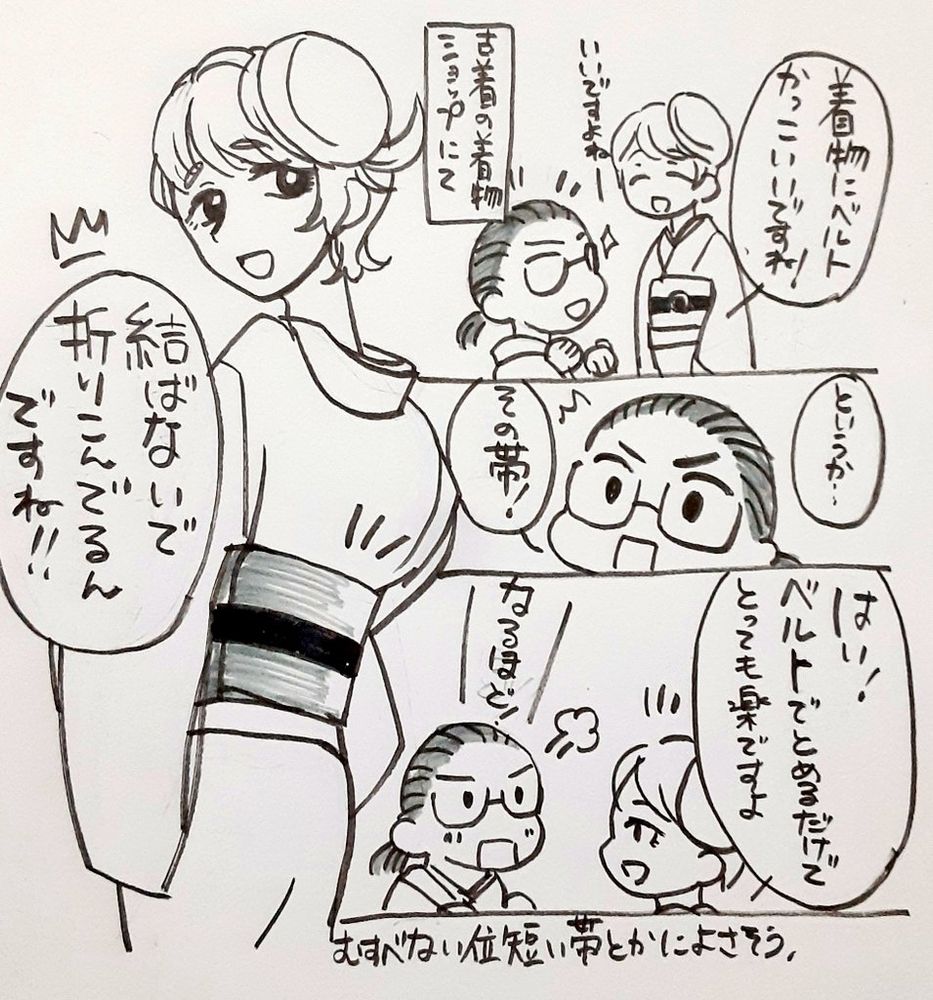 古着の着物
ショップにて
着物にベルト
かっこいいですね!
いいですよねー
というか…
その帯!
結ばないで
折りこんでるん
ですね!!
はい!
ベルトでとめるだけで
とっても楽ですよ
なるほど!
むすべない位短い帯とかによさそう。